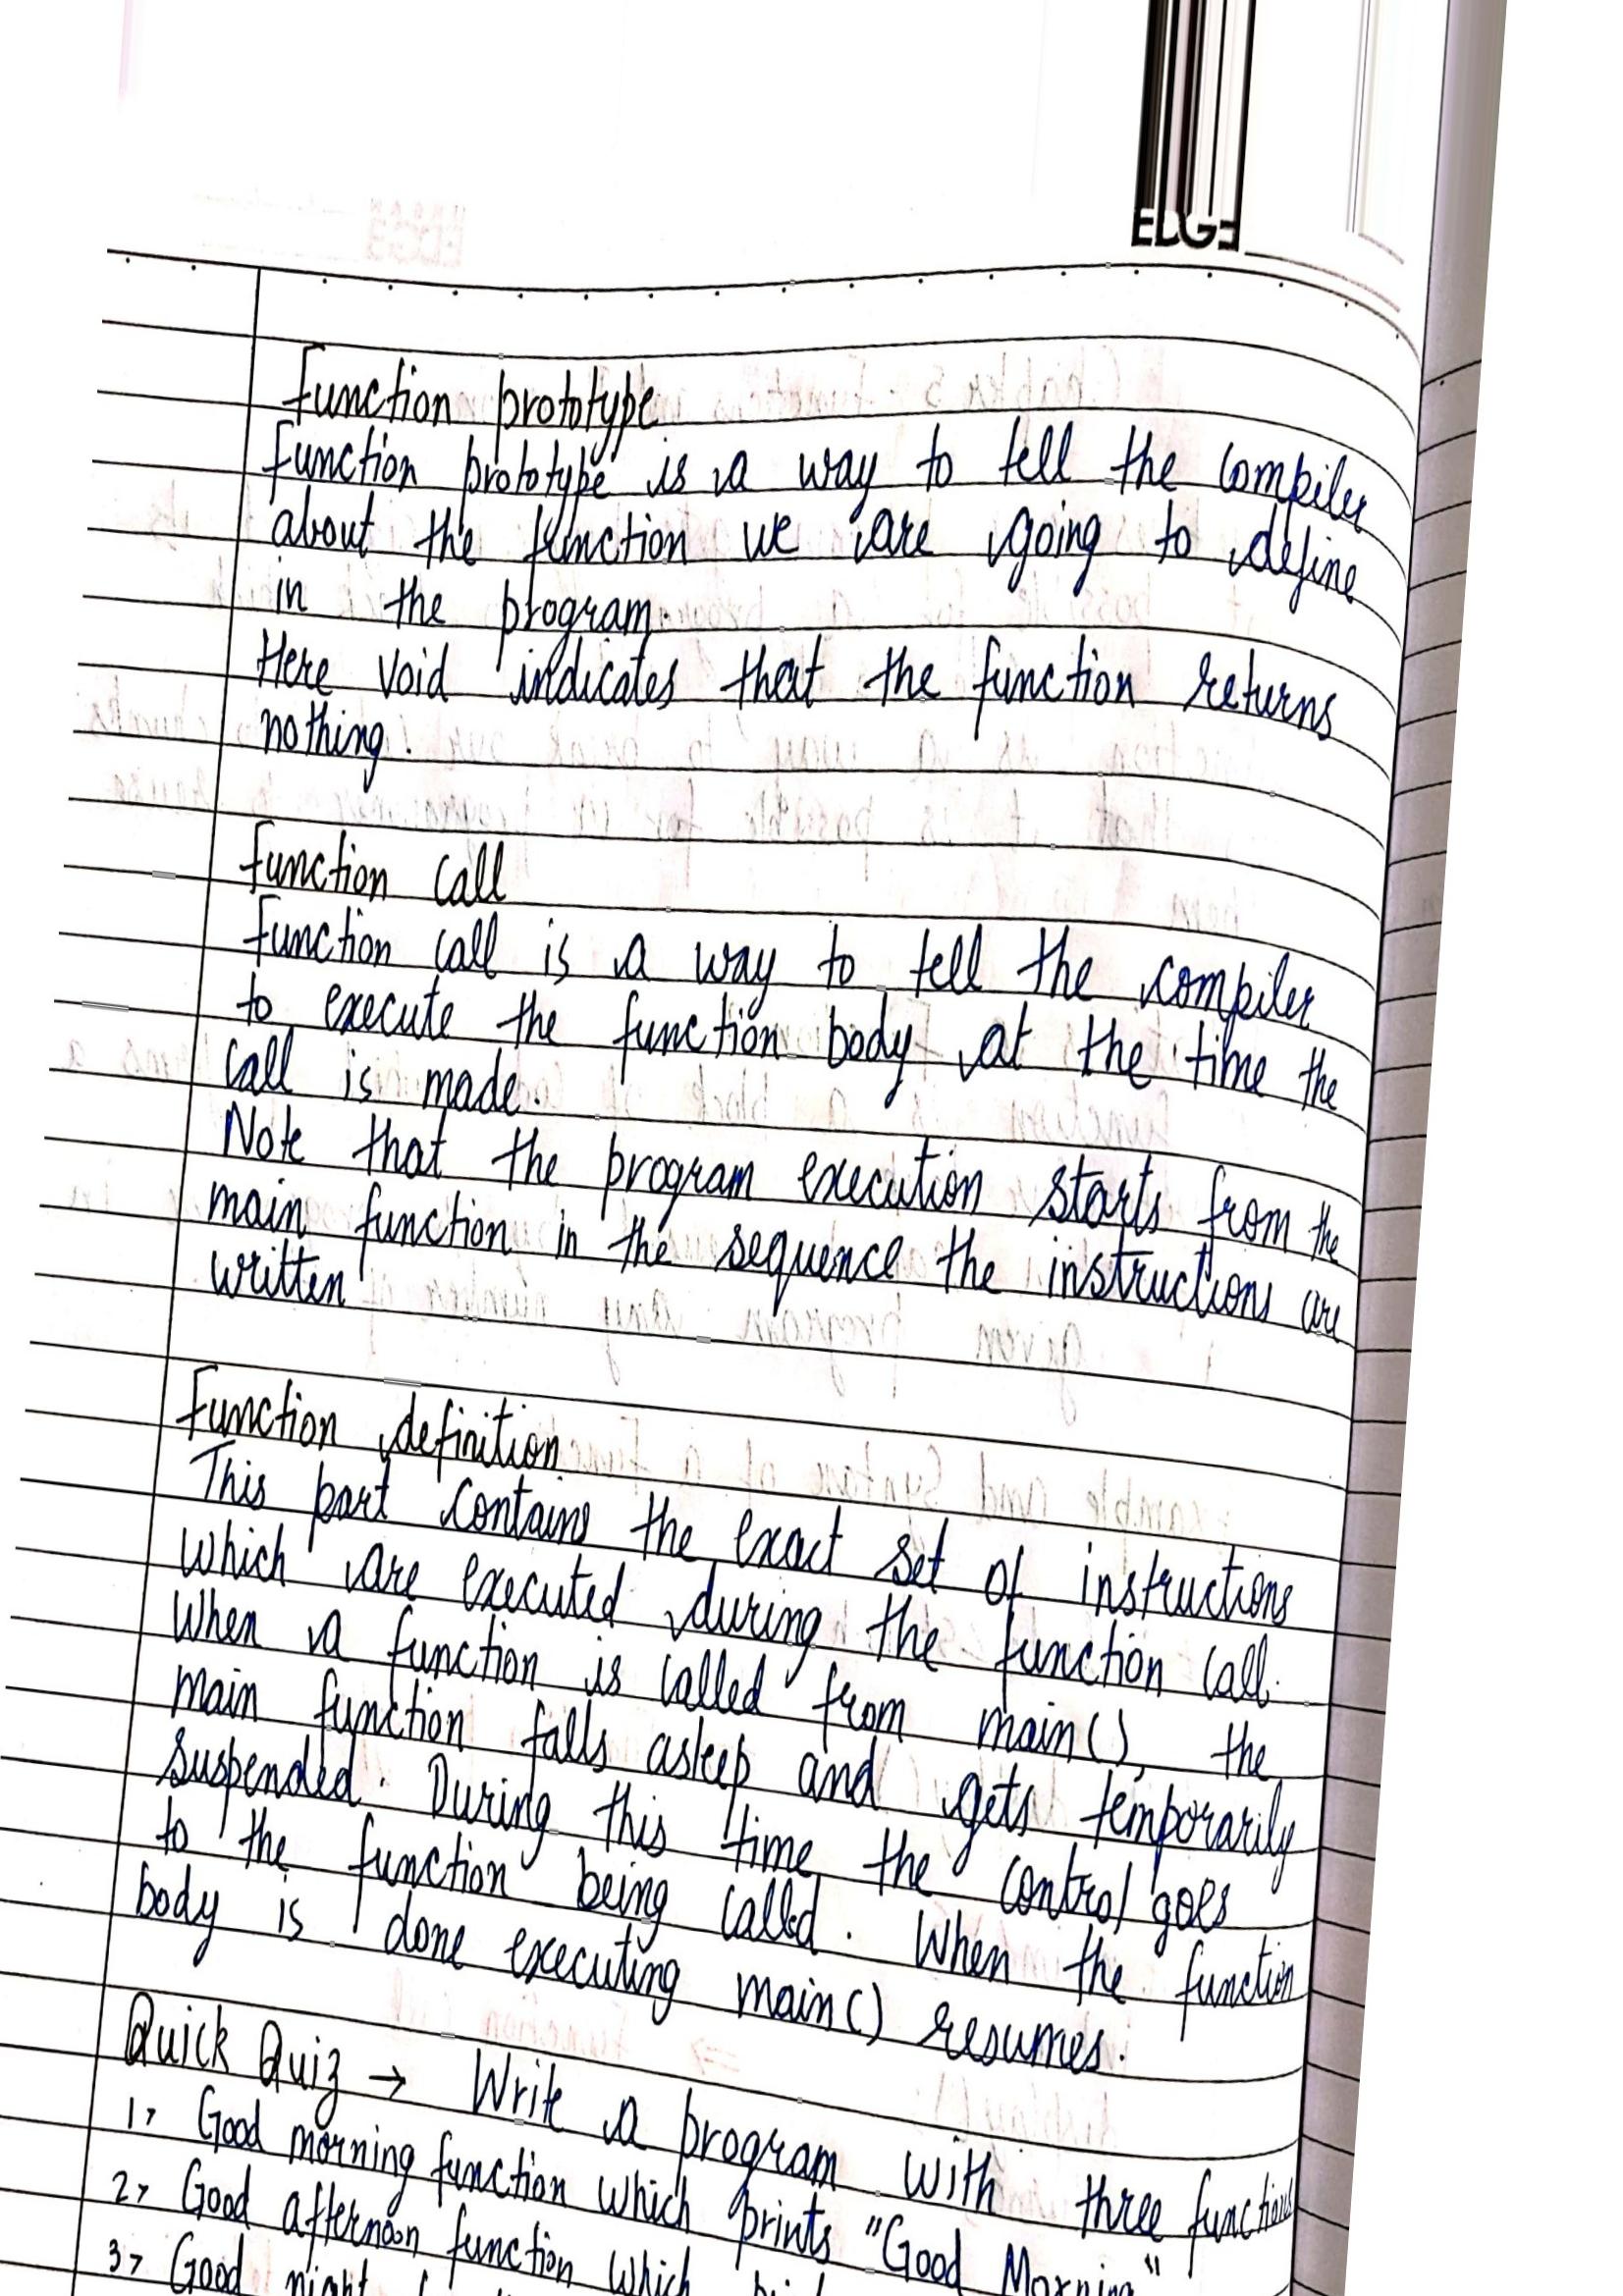 EDGE
Function prototype
Function prototype is a way to tell the compiler
about the function we are going to define
in the program.
Here void indicates that the function returns
nothing.
Function call
Function call is a way to tell the compiler
to execute the function body at the time the
call is made.
Note that the program execution starts from the
main function in the sequence the instructions are
written
Function definition
This part contains the exact set of instructions
which are executed during the function call.
When a function is called from main(), the
main function falls asleep and gets temporarily
suspended. During this time the control goes
to the function being called. When the function
body is done executing main() resumes.
Quick Quiz → Write a program with three functions
1> Good morning function which prints "Good Morning"
2> Good afternoon function which
3> Good night